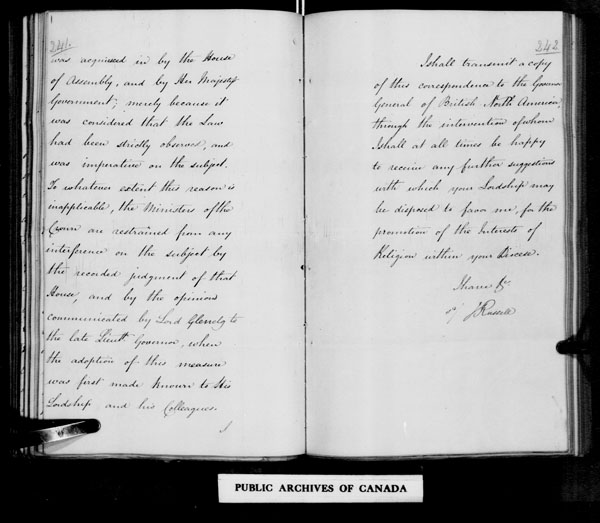 241.
was acquiesced in by the House
of Assembly, and by Her Majesty's
Government; merely because it
was considered that the Law
had been strictly observed, and
was imperative on the subject.
To whatever extent this reason is
inapplicable, the Ministers of the
Crown are restrained from any
interference on the subject by
the recorded judgment of that
House, and by the opinions
communicated by Lord Glenelg to
the late Lieutt. Governor, when
the adoption of this measure
was first made known to His
Lordship and his Colleagues.
I
242
I shall transmit a copy
of this correspondence to the Governor
General of British North America
through the intervention of whom
I shall at all times be happy
to receive any further suggestions
with which your Lordship may
be disposed to favor me, for the
promotion of the Interests of
Religion within your Diocese.
I have &c.
J Russell
PUBLIC ARCHIVES OF CANADA